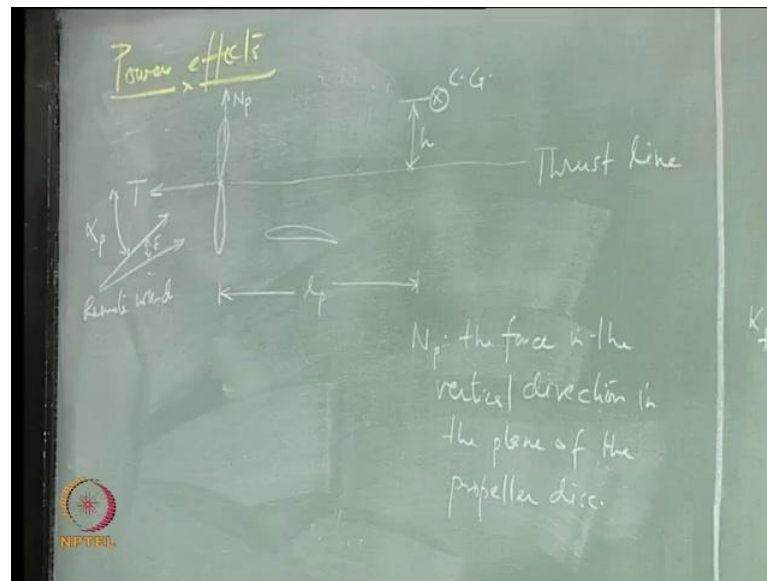 Power effects
Np
C.G.
h
Thrust line
T
αp
ε
Remote wind
lp
Np: the force in the
vertical direction in
the plane of the
propeller disc.
NPTEL